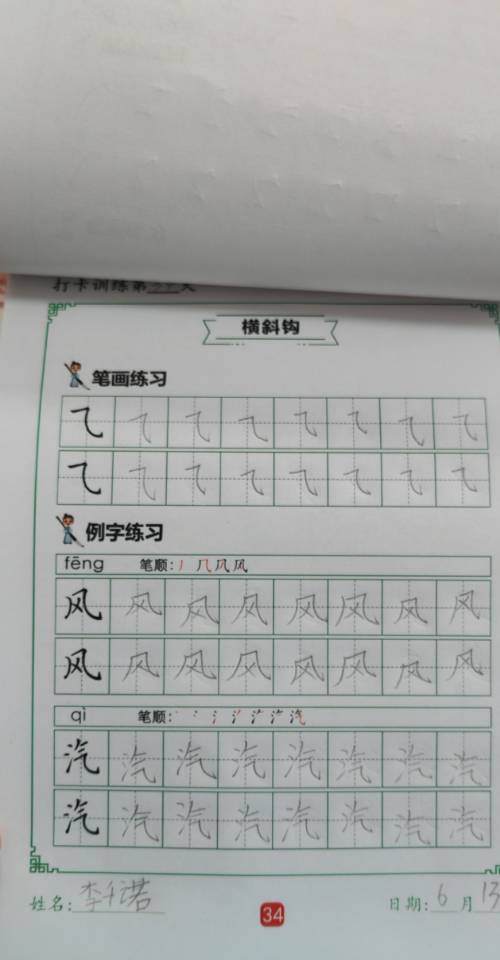 打卡训练第 天
横斜钩
笔画练习
㇈ ㇈ ㇈ ㇈ ㇈ ㇈ ㇈ ㇈
㇈ ㇈ ㇈ ㇈ ㇈ ㇈ ㇈ ㇈
例字练习
fēng 笔顺:
风 风 风 风 风 风 风 风
风 风 风 风 风 风 风 风
qì 笔顺:
汽 汽 汽 汽 汽 汽 汽 汽
汽 汽 汽 汽 汽 汽 汽 汽
姓名: 李千诺 34 日期: 6 月 13